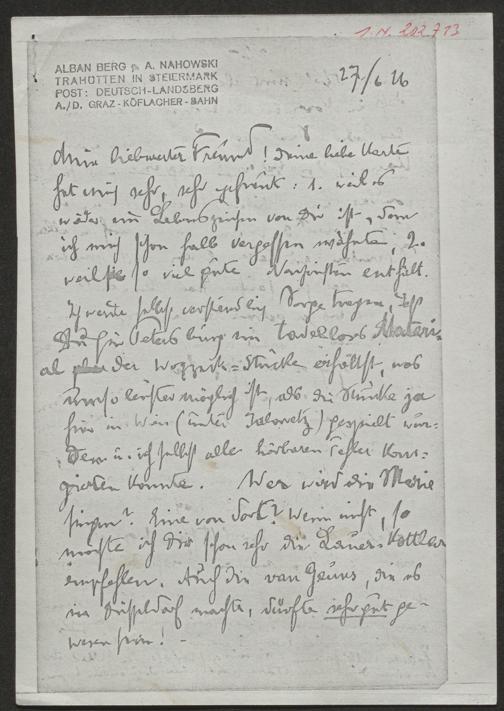 I. N. 202.713
ALBAN BERG p. A. NAHOWSKI
TRAHÜTTEN IN STEIERMARK
POST: DEUTSCH-LANDSBERG
A./D. GRAZ-KÖFLACHER-BAHN
27/6 26
Mein liebwerter Freund! Deine liebe Karte
hat mich sehr, sehr gefreut: 1. weil es
wieder ein Lebenszeichen von Dir ist, dem
ich mich schon halb vergessen wähnte, 2.
weil sie so viel gute Nachrichten enthält.
Ich werde selbstverständlich Sorge tragen, daß
Du für Petersburg ein tadelloses Materi-
al der Wozzeck-Stücke erhältst, was
umso leichter möglich ist, als die Stücke ja
hier in Wien (unter Jalowetz) gespielt wur-
den u. ich selbst alle hörbaren Fehler korri-
gieren konnte. Wer wird die Marie
singen? Eine von dort? Wenn nicht, so
möchte ich Dir schon sehr die Lauer-Kottlar
empfehlen. Auch die van Geuns, die es
in Düsseldorf machte, dürfte sehr gut ge-
wesen sein! -